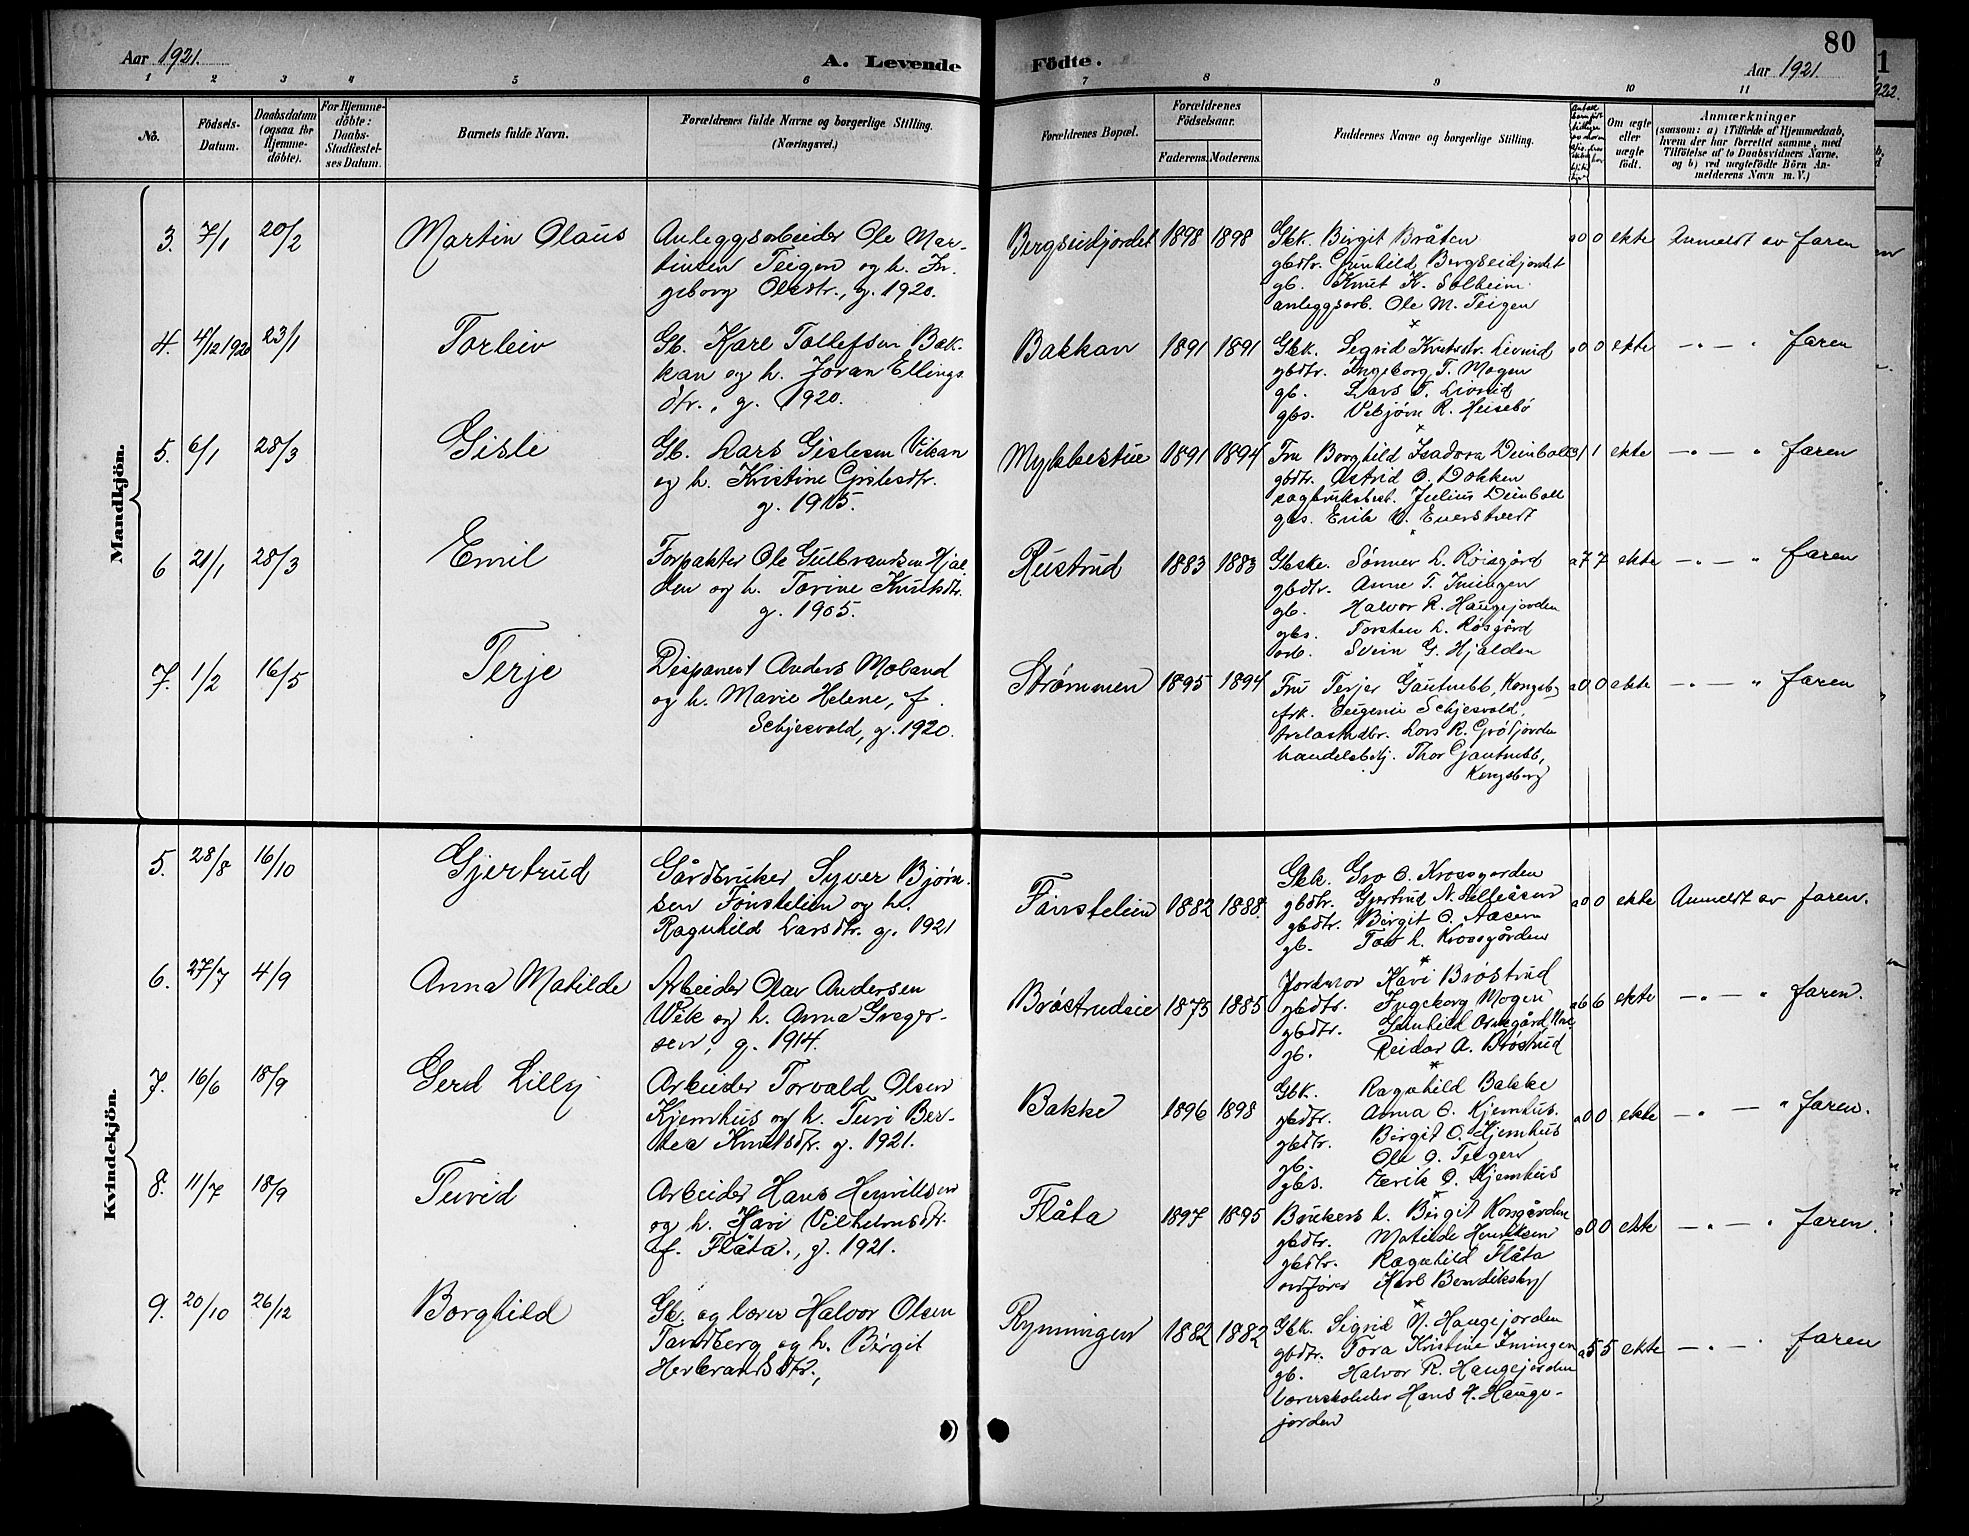 80
Aar 1921.
A. Levende
Födte.
Aar 1921
1 2 3 4 5 6 7 8 9 10 11
No.
Födsels-
Datum.
Daabsdatum
(ogsaa for
Hjemme-
döbte).
For Hjemme-
döbte:
Daabs-
Stadfæstel-
ses Datum.
Barnets fulde Navn.
Forældrenes fulde Navne og borgerlige Stilling.
(Næringsvei.)
Forældrenes Bopæl.
Forældrenes
Födselsaar.
Faderens.
Moderens.
Faddernes Navne og borgerlige Stilling.
Om ægte
eller
uægte
födt.
Anmærkninger
(saasom: a) i Tilfælde af Hjemmedaab,
hvem der har forrettet samme, med
Tilföielse af to Daabsvidners Navne,
og b) ved uægtefödte Börn An-
melderens Navn m. V.)
Mandkjön.
3. 7/1 20/2 Martin Olaus
Anleggsarbeider Ole Mar-
tinsen Teigen og h. In-
geborg Olsdtr., g. 1920.
Bergseidjordet 1898 1898
Gbk. Birgit Bråten
gbdtr. Gunhild Bergseidjordet
gb. Knut K. Solheim
anleggsarb. Ole M. Teigen
a0 0 ekte Anmeldt av faren
4. 4/12 1920 23/1 Torleiv
Gb. Karl Tollefsen Bak-
kan og h. Jøran Ellings-
dtr., g. 1920.
Bakkan 1891 1891
Gbk. Sigrid Knutsdtr. Livrud
gbdtr. Ingeborg T. Mogen
gb. Lars T. Livrud
gbs. Vebjørn R. Heisebø
a0 0 ekte — " — " faren
5. 6/1 28/3 Gisle
Gb. Lars Gislesen Vikan
og h. Kristine Grilsdtr.
g. 1915.
Mykkestue 1891 1894
Fru Borghild Isadora Deinboll
gbdtr. Astrid O. Dokken
sagbruksbest. Julius Deinboll
gbs. Erik O. Everstvedt
1 ekte — " — " faren
6 21/1 28/3 Emil
Forpakter Ole Gulbrandsen Hjal-
den og h. Torine Knutsdtr.
g. 1905.
Rustrud 1883 1883
Gbske. Sønnev L. Røisgård
gbdtr. Anne T. Imingen
gb. Halvor R. Haugejorden
gbs. Torsten L. Røsgård
arb. Svein G. Hjalden
a7 7 ekte — " — " faren
7. 1/2 16/5 Terje
Disponent Anders Moland
og h. Marie Helene, f.
Schjesvold, g. 1920.
Strømmen 1895 1894
Fru Terjer Gautnebb, Kongsb.
frk. Eugenie Schjesvold,
Lars R. Grøtjorden
handelsbetj. Thor Gautnebb,
Kongsberg
a0 0 ekte — " — " faren
Kvindekjön.
5. 28/8 16/10 Gjertrud
Gårdbruker Syver Bjørn-
sen Fønsteleien og h.
Ragnhild Larsdtr. g. 1921
Fønsteleien 1882 1888.
Gbk. Gro O. Krossgorden
gbdtr. Gjertrud N.
gbdtr. Birgit O. Aasen
gb. Tov L. Krossgården
a0 0 ekte Anmeldt av faren.
6. 27/7 4/9 Anna Matilde
Arbeider Olav Andersen
Wik og h. Anna Greger-
sen, g. 1914.
Brøstrudeie 1875 1885
Jordmor Kari Brøstrud
gbdtr. Ingeborg Mogen
gbdtr. Gunhild
gb. Reidar A. Brøstrud
a6 6 ekte — " — " faren.
7. 16/6 18/9 Gerd Lilly
Arbeider Torvald Olsen
Kjemhus og h. Turi Ber-
tea Knutsdtr. g. 1921.
Bakke 1896 1898
Gbk. Ragnhild Bakke
gbdtr. Anna O. Kjemhus.
gbdtr. Birgit O. Kjemhus
gb. Ole O. Teigen
gbs. Eerik O. Kjemhus
a0 0 ekte — " — " faren.
8. 11/7 18/9 Turid
Arbeider Hans Henriksen
og h. Kari Vilhelmsdtr.
f. Flåta., g. 1921.
Flåta 1897 1895
Brukers h. Birgit Korsgården
gbdtr. Matilde Henriksen
gbdtr. Ragnhild Flåta
ordfører Karl Bendiksby
a0 0 ekte — " — " faren.
9. 20/10 26/12 Borghild
Gb. og lærer Halvor Olsen
Tandberg og h. Birgit
Herbrandsdtr.,
Rynningen 1882 1882
Gbk. Sigrid N. Haugejorden
gbdtr. Tora Kristine Imingen
gb. Halvor R. Haugejorden
lærerskoleelev Hans H. Hauge-
jorden
a5 5 ekte — " — " faren